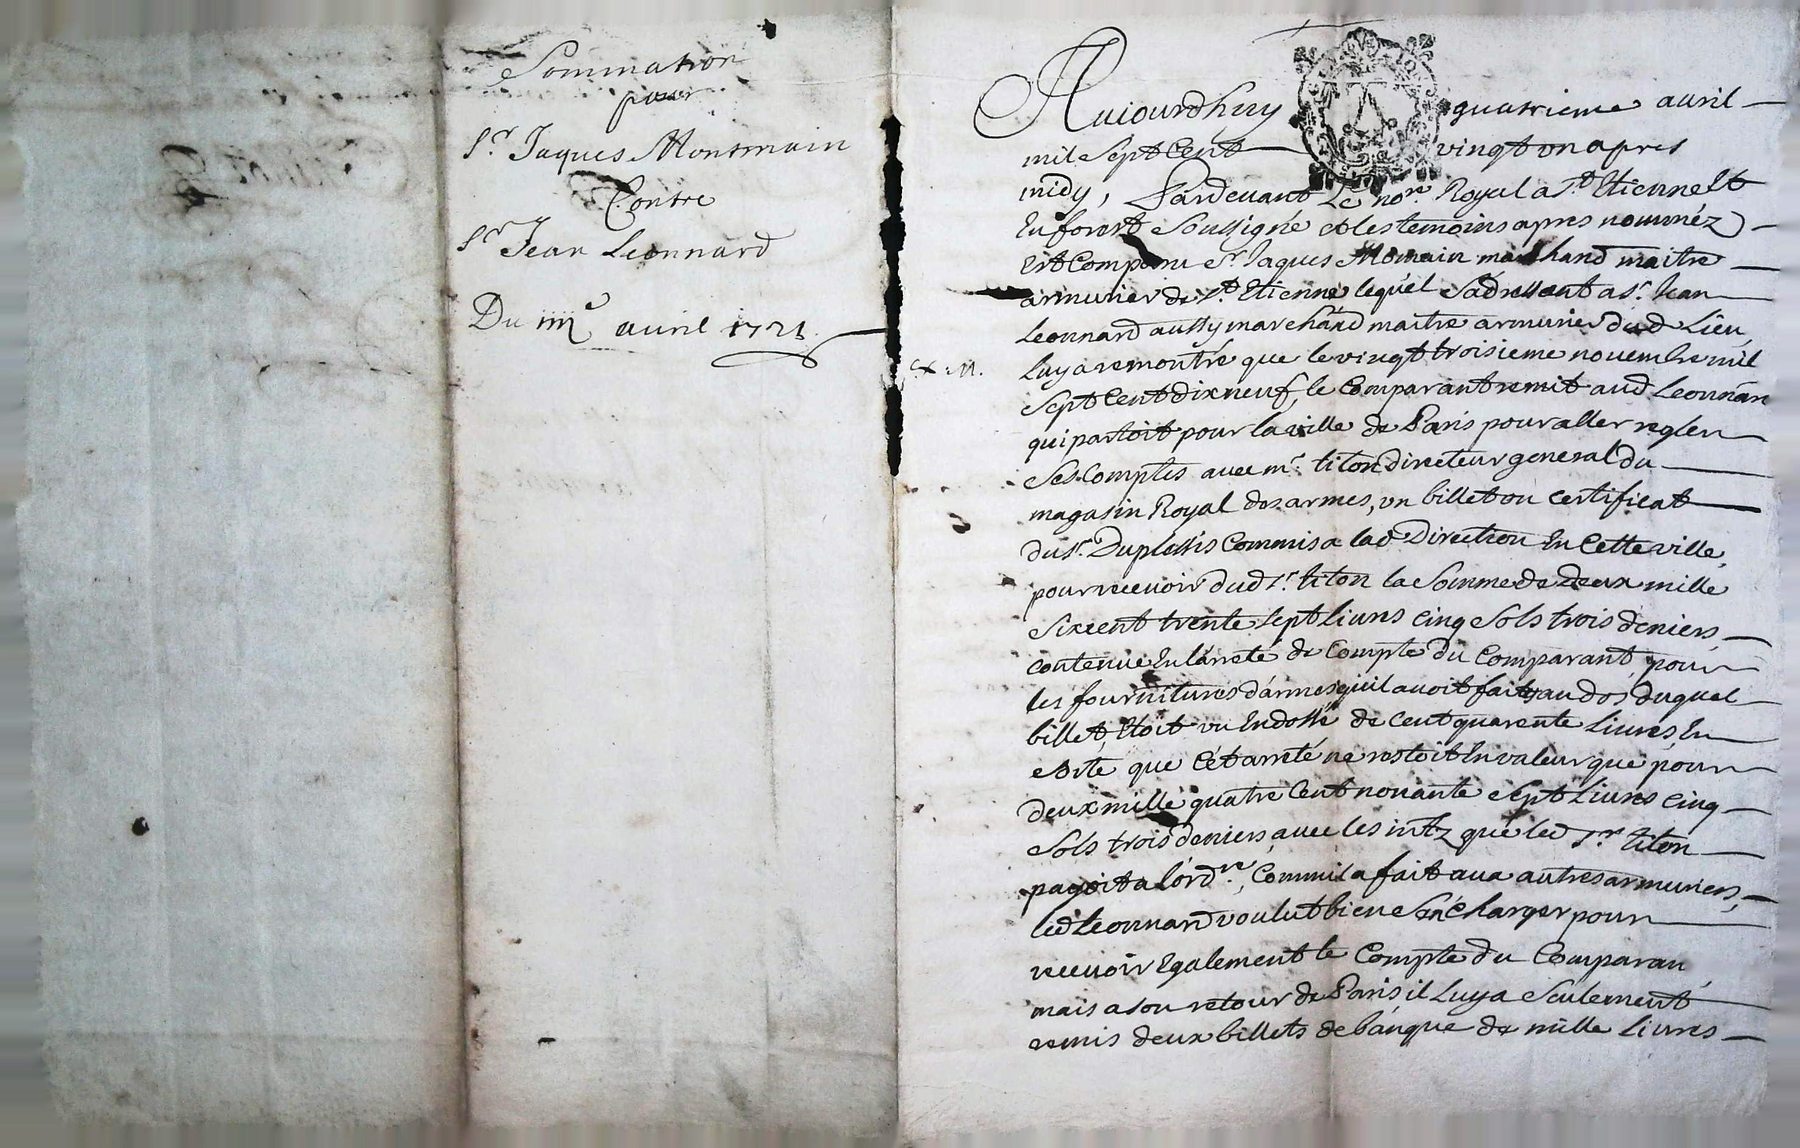 Sommation
pour
Sr. Jaques Monsmain
Contre
Sr Jean Leonnard
Du IIIIe avril 1721.
Aujourdhuy quatrieme avril
mil sept cent vingt un apres
midy, Pardevant Le nore. Royal a St Etienne Et
En forest Soussigné et les temoins apres nommez
Est Comparu Sr. Jaques marchand maitre
armurier de St. Etienne lequel Sadressant a Sr. Jean
Leonnard aussy marchand maitre armurier dud Lieu,
Luy a remontré que le vingt troisieme novembre mil
Sept Cent dix neuf, le Comparant remit aud Leonnar
qui partoit pour la ville de Paris pour aller regler
Ses Comptes avec mr. titon directeur general du
magasin Royal des armes, un billet ou certificat
du Sr. Duplessis Commis a lad Direction En Cette ville,
pour recevoir dud Sr. titon la Somme de deux mille
Six cent trente Sept Livres cinq Sols trois deniers
contenue En larreté de Compte du Comparant, pour
les fournitures d'armes quil avoit faites au dos duquel
billet, Etoit un Endossé de Cent quarente Livres, En
sorte que Cet arreté ne restoit En valeur que pour
deux mille quatre Cent nonante Sept Livres cinq
Sols trois deniers, avec les intz que led Sr. titon
payoit a lordre., Comme il a fait aux autres armuriers,
led Leonnard voulut bien Sen Charger pour
recevoir Egalement le Compte du Comparan
mais a son retour de Paris il Luy a Seulement
remis deux billets de banque de mille Livres